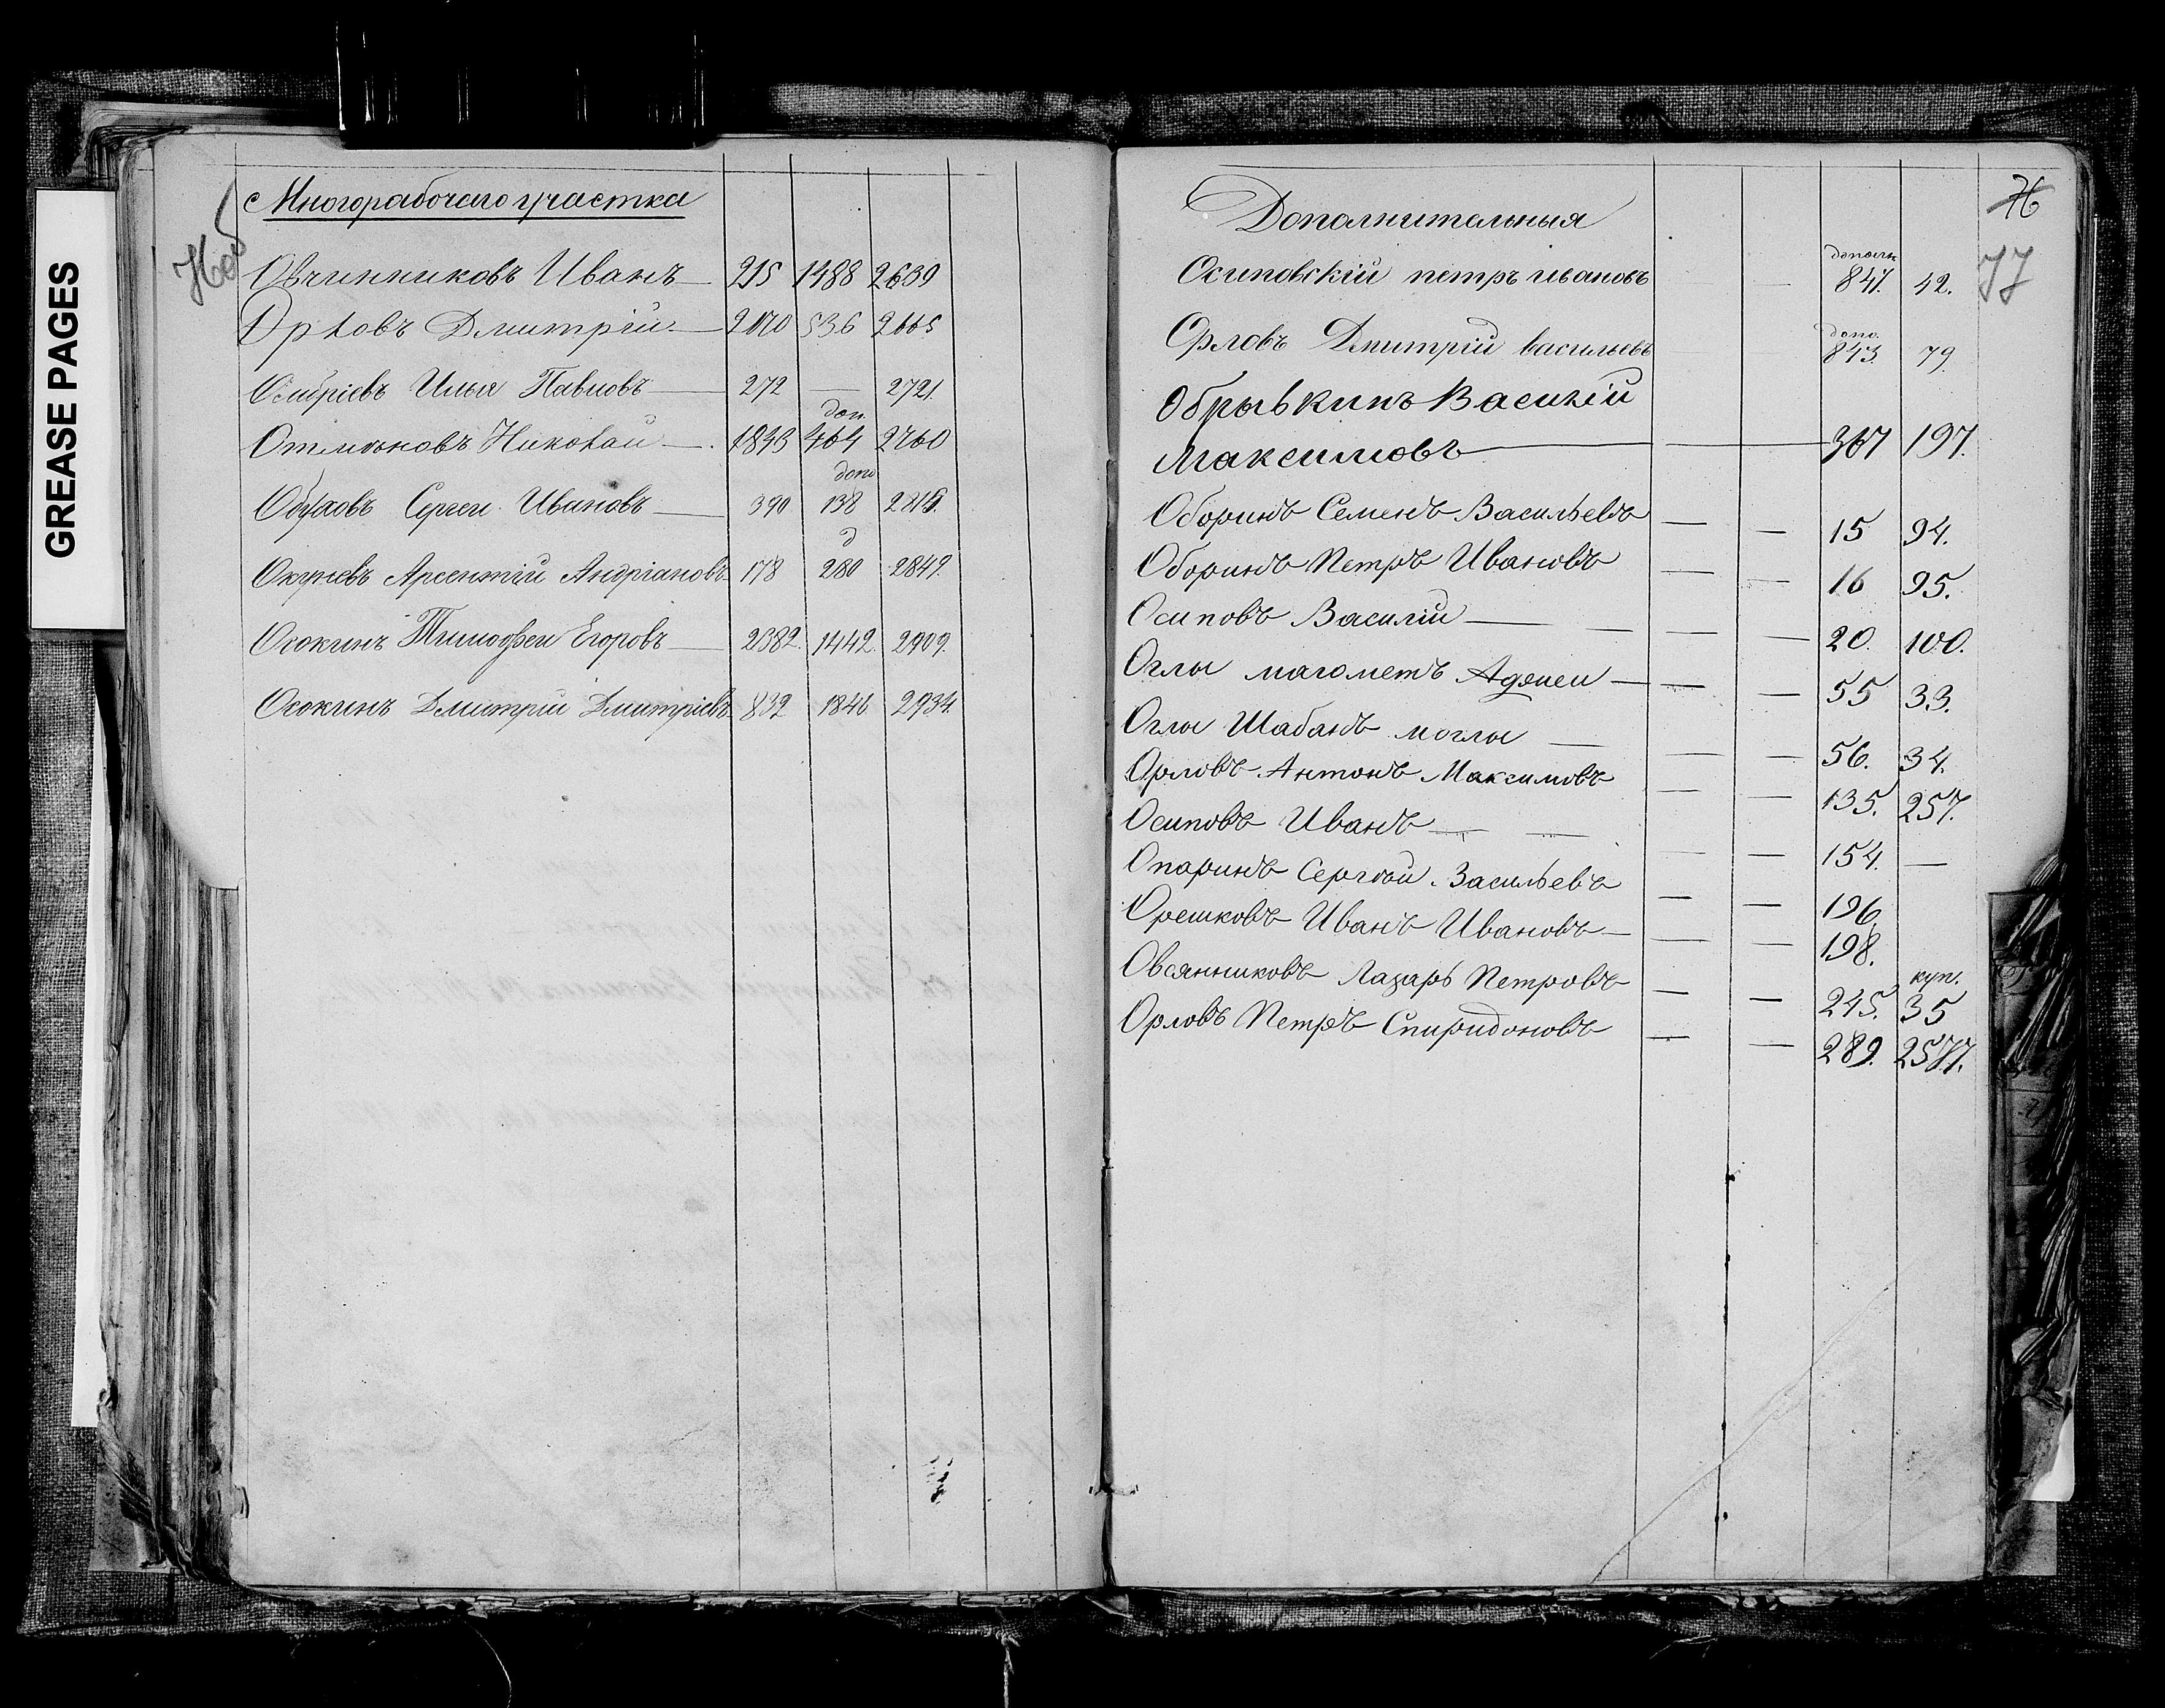 GREASE PAGES
Многорабочаго участка
Овчинниковъ Иванъ — 215 1488 2639
Орловъ Дмитрій — 2070 536 2665
Илья Павловъ — 272 — 2721
доп.
Николай — 1843 464 2760
допо
Обуховъ Сергеи Ивановъ — 390 138 2816.
д
Окуневъ Арсентий Андріановъ 178 280 2849.
Осокинъ Тимофеи Егоровъ — 2382. 1442. 2909.
Осокинъ Дмитрии Дмитріевъ 832 1846 2934.
77
Дополнительныя
дополн
Осиповскій петръ ивановъ — 841. 42.
допо.
Орловъ Дмитрій васильевъ 843. 79.
Обрывкинъ Василій
Максимовъ — — 367 197.
Оборинъ Семенъ Васильевъ — — 15 94.
Оборинъ Петръ Ивановъ — — 16 95.
Осиповъ Василій — — — — 20. 100.
Оглы магометъ — — — 55 33.
Оглы Шабанъ моглы — — — 56. 34.
Орловъ Антонъ Максимовъ — — 135. 257.
Осиповъ Иванъ — — — — 154. —
Опаринъ Сергѣй Васильевъ — — 196
Орешковъ Иванъ Ивановъ — — — 198.
куп.
Овсянниковъ Лазарь Петровъ — — 245. 35
Орловъ Петръ Спиридоновъ — — 289. 2577.